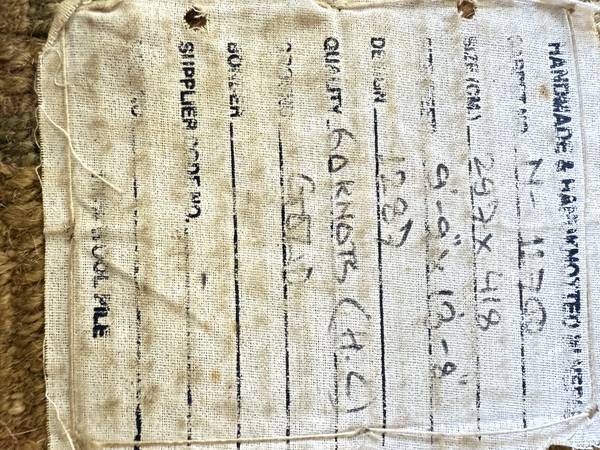 HANDMADE & HANDKNOTTED IN
CARPET NO. N-11702
SIZE (CM.) 297 X 418
9'-9" X 13'-8"
DESIGN 1287
QUALITY 60 KNOTS (H.C)
GROUND GOLD
BORDER
SUPPLIER CODE NO.
WOOL PILE